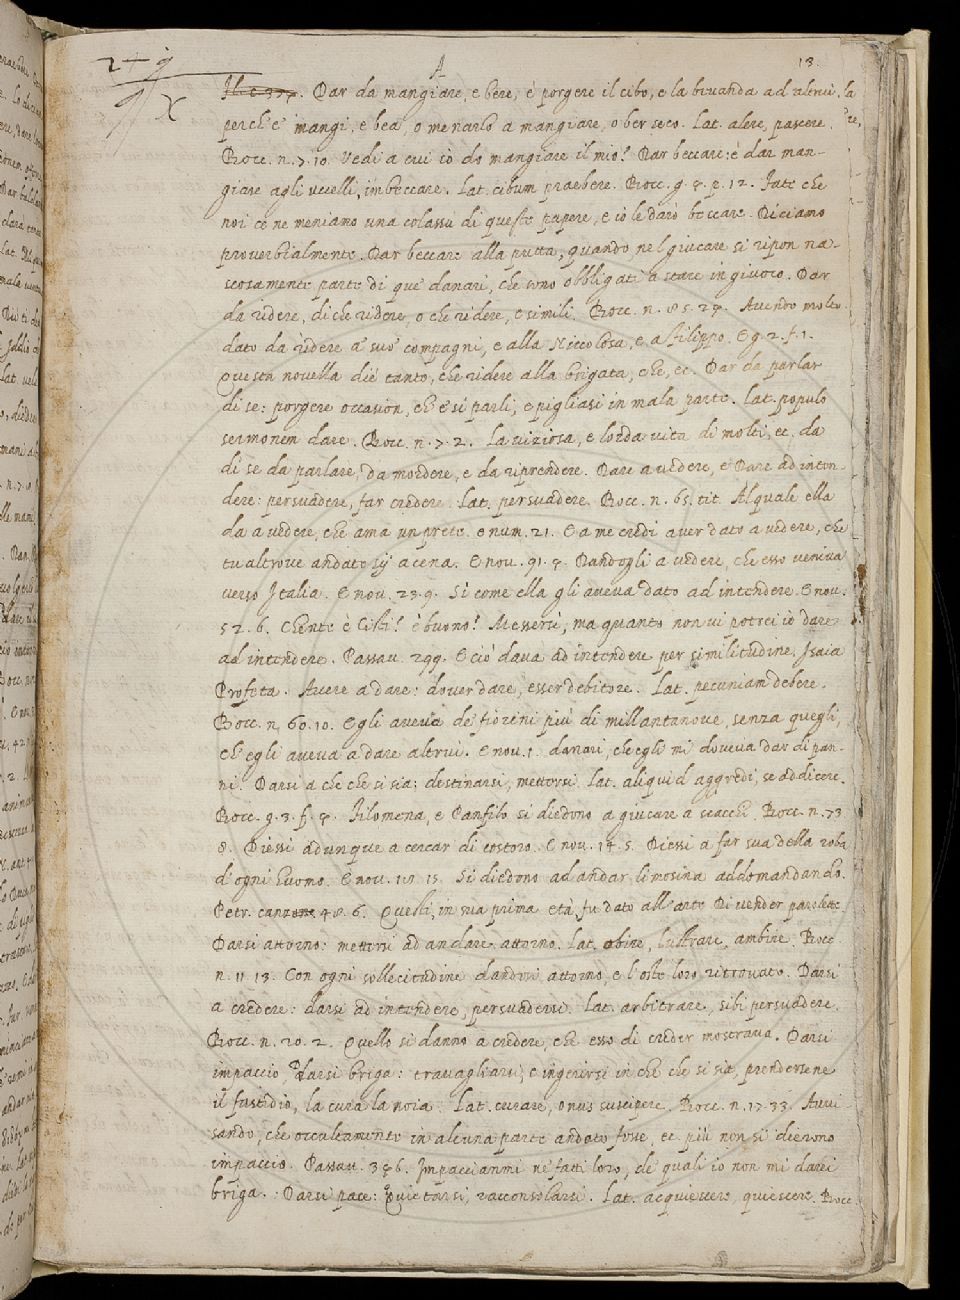 A
13.
Dar da mangiare, e bere, è porgere il cibo, e la bevanda ad altrui,
perch'e' mangi, e bea, o menarlo a mangiare, o ber seco. Lat. alere, pascere.
Bocc. n. 7. 10. Vedi a cui io do mangiare il mio! Dar beccare: è dar man-
giare agli uccelli, imbeccare. Lat. cibum praebere. Bocc. g. 4. p. 12. Fate che
noi ce ne meniamo una colassù di queste papere, e io le darò beccare. Diciamo
proverbialmente. Dar beccare alla putta, quando nel giucare si ripon na-
scosamente parte di que' danari, che sono obbligati a stare in giuoco. Dar
da ridere, di che ridere, o che ridere, e simili. Bocc. n. 85. 24. Avendo molto
dato da ridere a' suo' compagni, e alla Niccolosa, e a Filippo. E g. 2. f. 1.
Questa novella diè tanto, che ridere alla brigata, che, ec. Dar da parlar
di se: porgere occasion, ch'e' si parli, e pigliasi in mala parte. Lat. populo
sermonem dare. Bocc. n. 7. 2. La viziosa, e lorda vita di molti, ec. da
di se da parlare, da mordere, e da riprendere. Dare a vedere, e Dare ad inten-
dere: persuadere, far credere. Lat. persuadere. Bocc. n. 65. tit. Al quale ella
da a vedere, che ama un prete. E num. 21. E a me credi aver dato a vedere, che
tu altrove andato sij a cena. E nov. 91. 4. Dandogli a vedere, che esso veniva
verso Italia. E nov. 23. 9. Si come ella gli aveva dato ad intendere. E nov.
52. 6. Chente è Cisti? è buono? Messersì, ma quanto non vi potrei io dare
ad intendere. Passav. 299. E ciò dava ad intendere per similitudine. Isaia
Profeta. Avere a dare: dover dare, esser debitore. Lat. pecuniam debere.
Bocc. n. 60. 10. Egli aveva de' fiorini più di millantanove, senza quegli,
ch'egli aveva a dare altrui. E nov. 1. danari, che egli mi doveva dar di pan-
ni. Darsi a che che si sia: destinarsi, mettersi. Lat. aliquid aggredi, se addicere.
Bocc. g. 3. f. 4. Filomena, e Panfilo si diedono a giucare a scacchi. Bocc. n. 73
8. Diessi adunque a cercar di costoro. E nov. 14. 5. Diessi a far sua della roba
d'ogni huomo. E nov. 15. Si diedono ad andar limosina addomandando.
Petr. canzone 48. 6. Questi, in sua prima età, fu dato all'arte Di vender parolette.
Darsi attorno: mettersi ad andare attorno. Lat. obire, lustrare, ambire. Bocc.
n. 11. 13. Con ogni sollecitudine dandosi attorno, e l'oste loro ritrovato. Darsi
a credere: darsi ad intendere, persuadersi. Lat. arbitrare, sibi persuadere.
Bocc. n. 20. 2. Quello si danno a credere, che esso di creder mostrava. Darsi
impaccio, Darsi briga: travagliarsi, e ingerirsi in che che si sia, prendersene
il fastidio, la cura la noia. Lat. curare, onus suscipere. Bocc. n. 17. 33. Avvi-
sando, che occultamente in alcuna parte andato fosse, ec. più non si dierono
impaccio. Passav. 346. Impaccianmi ne' fatti loro, de' quali io non mi darei
briga. Darsi pace: quietarsi, racconsolarsi. Lat. acquiescere, quiescere. Bocc.